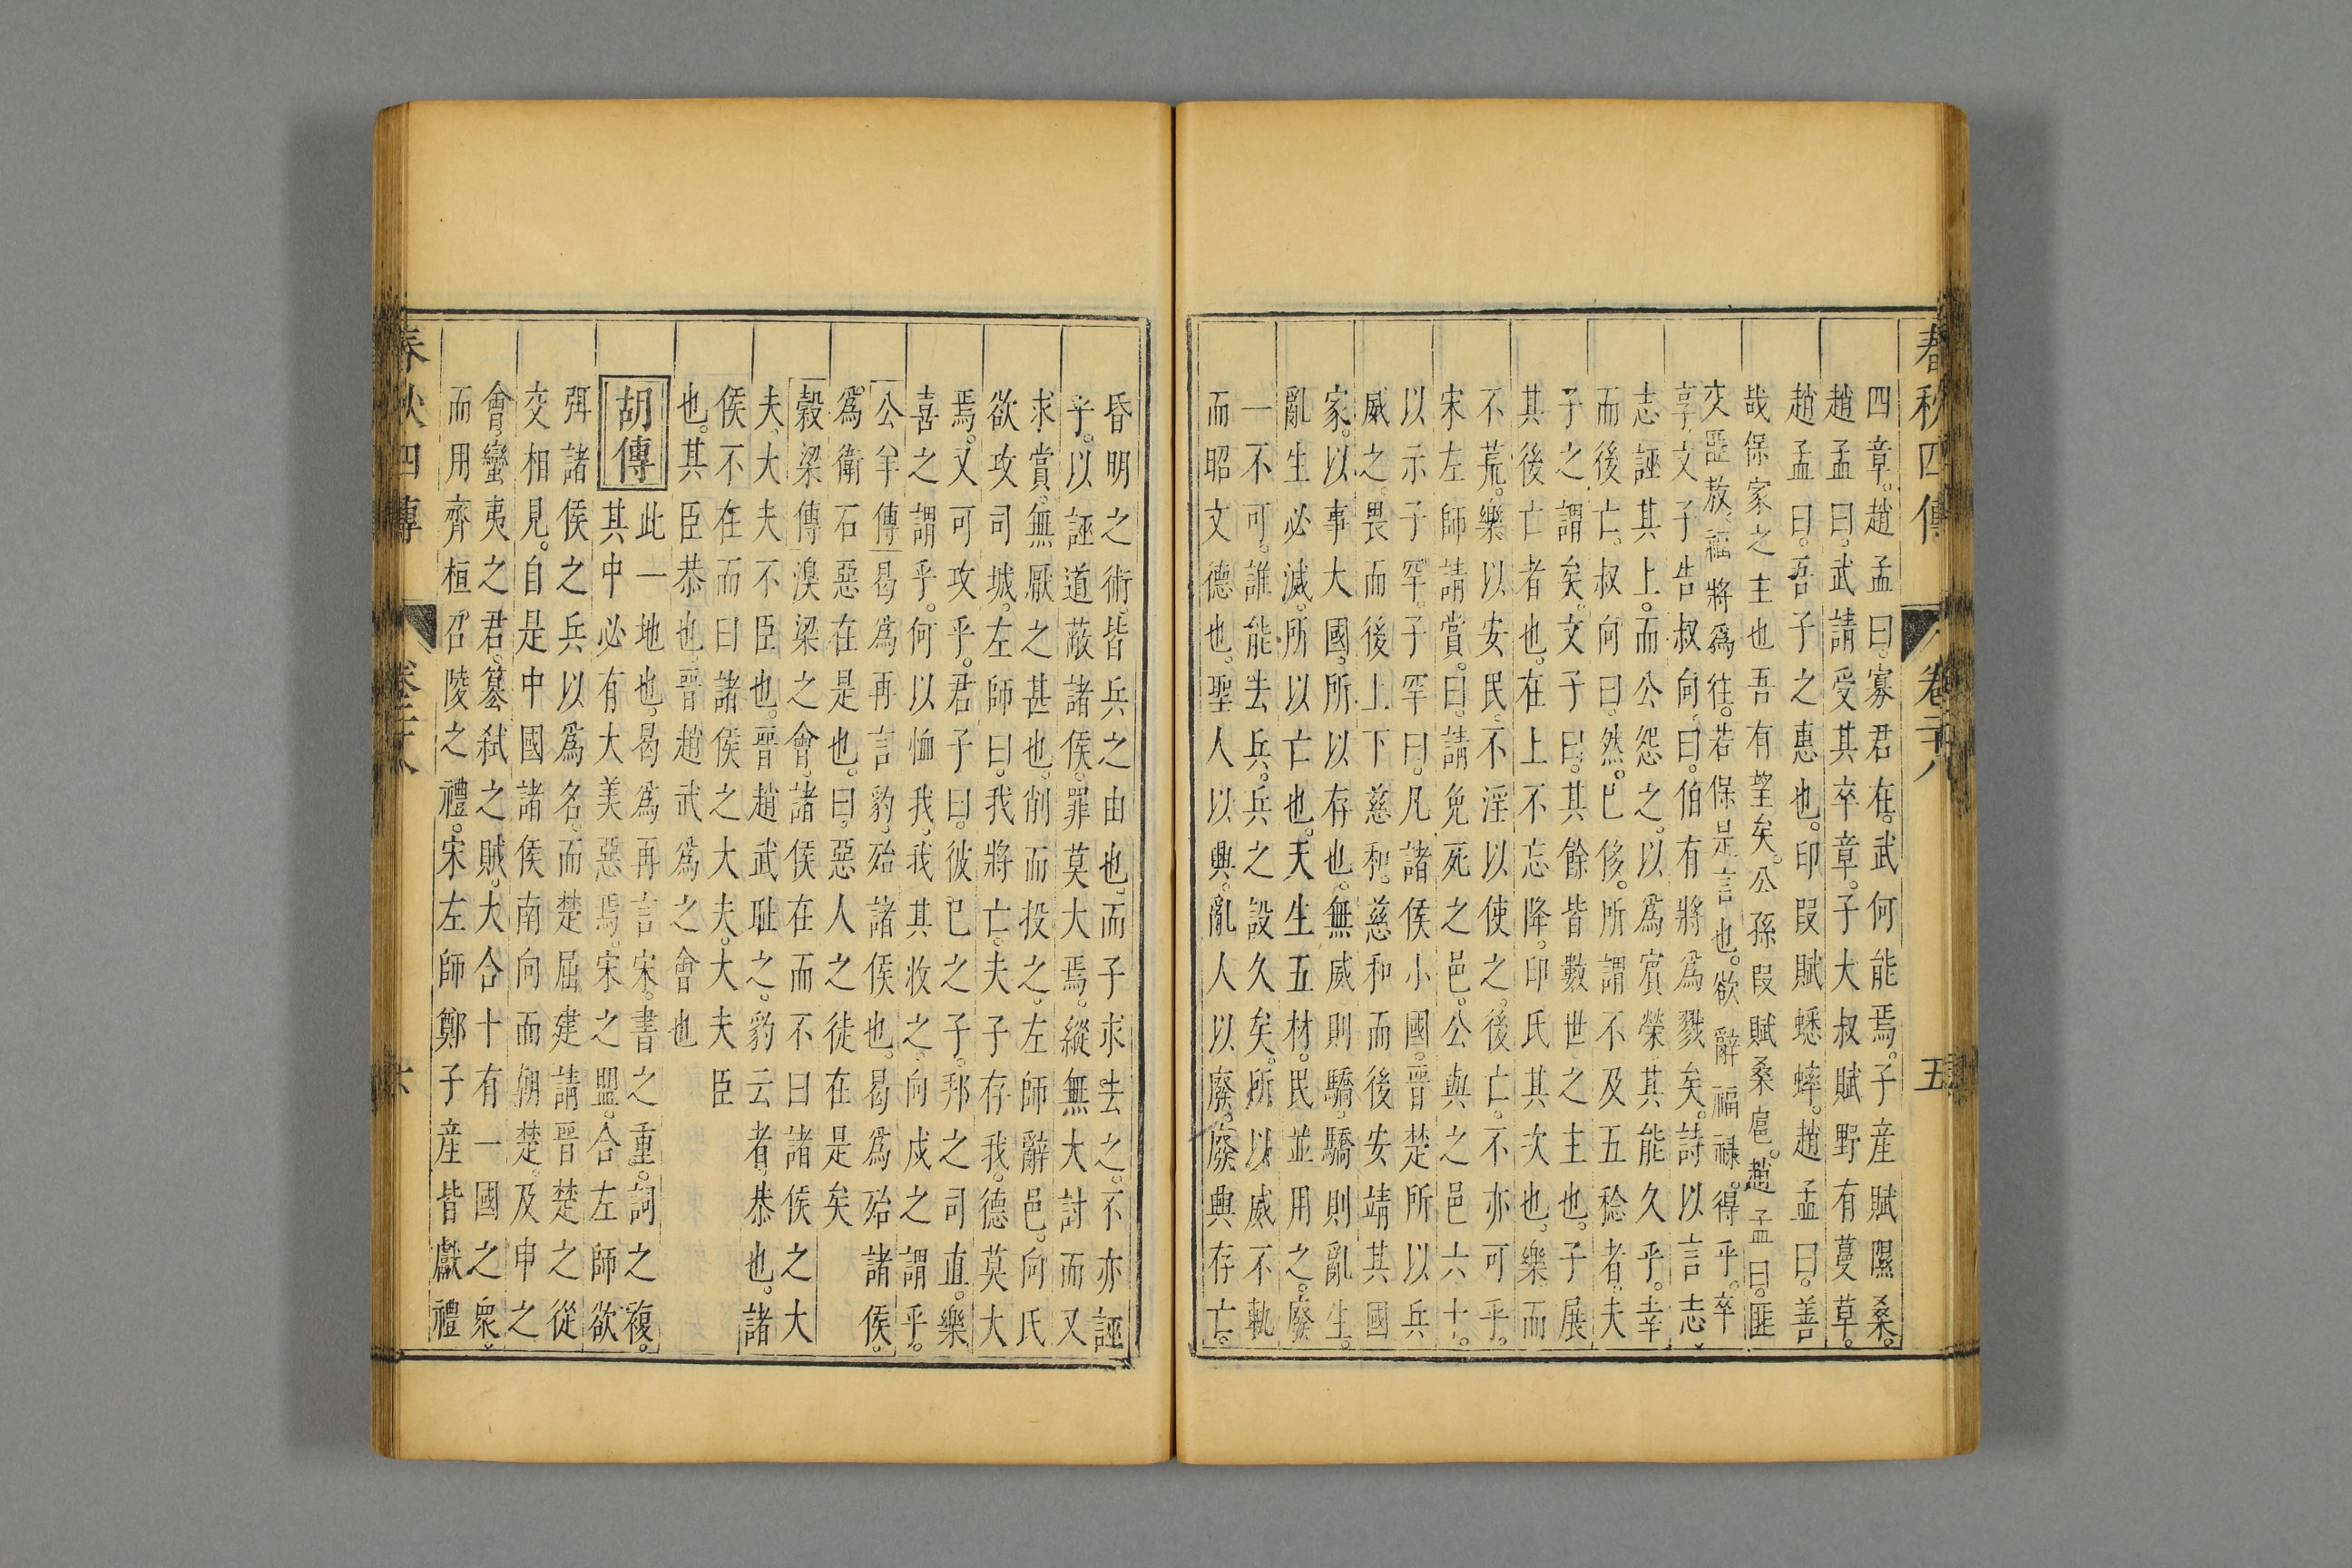 春秋四傳 卷二十八 五
四章。趙孟曰。寡君在。武何能焉。子產賦隰桑。
趙孟曰。武請受其卒章。子大叔賦野有蔓草。
趙孟曰。吾子之惠也。印段賦蟋蟀。趙孟曰。善
哉保家之主也吾有望矣。公孫段賦桑扈。趙孟曰。匪
交匪敖。福將焉往。若保是言也。欲辭福祿。得乎。卒
享。文子告叔向。曰。伯有將爲戮矣。詩以言志。
志誣其上。而公怨之。以爲賓榮。其能久乎。幸
而後亡。叔向曰。然。已侈。所謂不及五稔者。夫
子之謂矣。文子曰。其餘皆數世之主也。子展
其後亡者也。在上不忘降。印氏其次也。樂而
不荒。樂以安民。不淫以使之。後亡。不亦可乎。
宋左師請賞。曰。請免死之邑。公與之邑六十。
以示子罕。子罕曰。凡諸侯小國。晉楚所以兵
威之。畏而後上下慈和。慈和而後安靖其國
家。以事大國。所以存也。無威則驕。驕則亂生。
亂生必滅。所以亡也。天生五材。民並用之。廢
一不可。誰能去兵。兵之設久矣。所以威不軌
而昭文德也。聖人以興。亂人以廢。廢興存亡。
昏明之術。皆兵之由也。而子求去之。不亦誣
乎。以誣道蔽諸侯。罪莫大焉。縱無大討而又
求賞。無厭之甚也。削而投之。左師辭邑。向氏
欲攻司城。左師曰。我將亡。夫子存我。德莫大
焉。又可攻乎。君子曰。彼已之子。邦之司直。樂
喜之謂乎。何以恤我。我其收之。向戌之謂乎。
公羊傳曷爲再言豹。殆諸侯也。曷爲殆諸侯。
爲衛石惡在是也。曰。惡人之徒在是矣
穀梁傳溴梁之會。諸侯在而不曰諸侯之大
夫。大夫不臣也。晉趙武恥之。豹云者。恭也。諸
侯不在而曰諸侯之大夫。大夫臣
也。其臣恭也。晉趙武爲之會也
胡傳 此一地也。曷爲再言宋。書之重。詞之複。
其中必有大美惡焉。宋之盟。合左師欲
弭諸侯之兵以爲名。而楚屈建請晉楚之從
交相見。自是中國諸侯南向而朝楚。及申之
會。蠻夷之君。簒弒之賊。大合十有一國之衆。
而用齊桓召陵之禮。宋左師鄭子產皆獻禮
春秋四傳 卷二十八 六